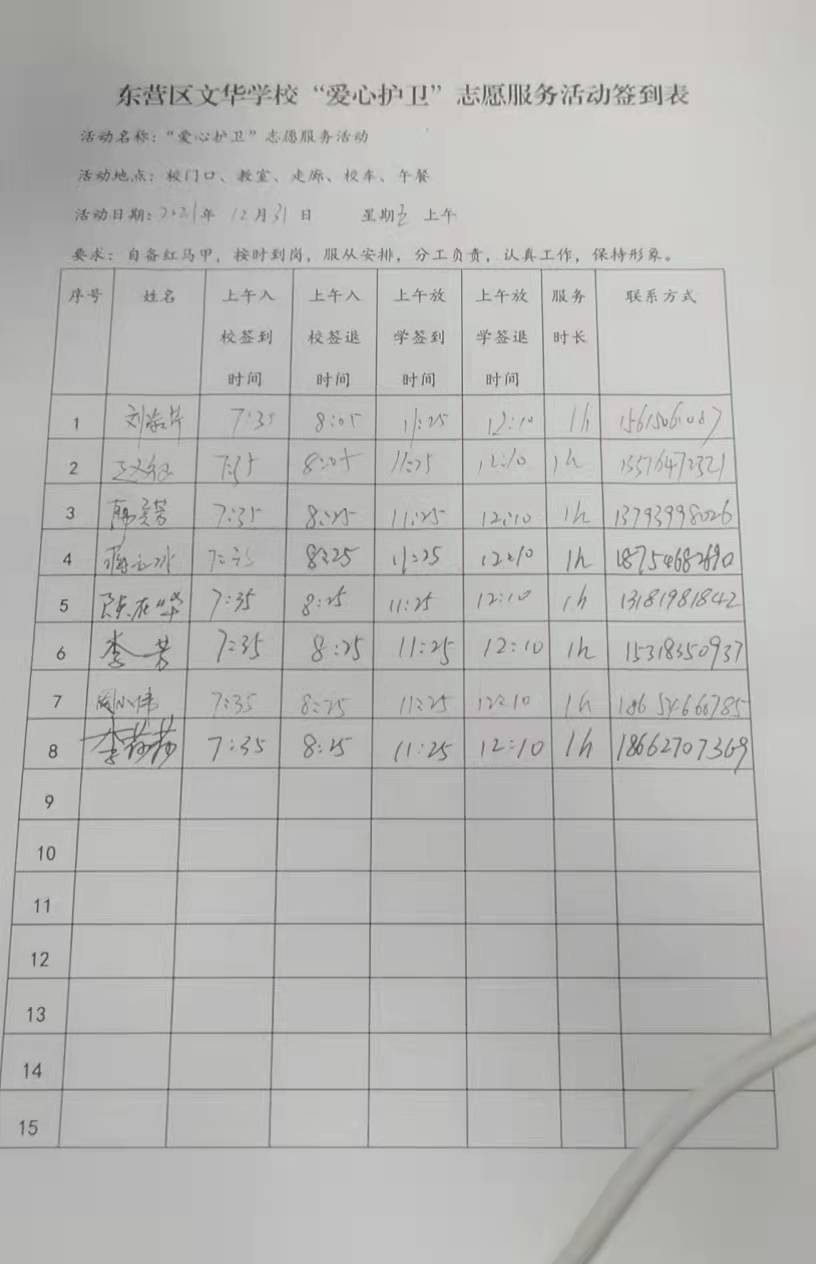 东营区文华学校“爱心护卫”志愿服务活动签到表
活动名称：“爱心护卫”志愿服务活动
活动地点：校门口、教室、走廊、校车、午餐
活动日期：2021年 12月31日 星期五 上午
要求：自备红马甲，按时到岗，服从安排，分工负责，认真工作，保持形象。
序号 姓名 上午入校签到时间 上午入校签退时间 上午放学签到时间 上午放学签退时间 服务时长 联系方式
1 7:35 8:05 11:25 12:10 1h
2 7:35 8:05 11:25 12:10 1h 15576472321
3 7:35 8:25 11:25 12:10 1h 13793998026
4 7:35 8:25 11:25 12:10 1h 18754682690
5 7:35 8:25 11:25 12:10 1h 13181981842
6 李芳 7:35 8:25 11:25 12:10 1h 15318350937
7 周小伟 7:35 8:25 11:25 12:10 1h 18654666785
8 李莎莎 7:35 8:25 11:25 12:10 1h 18662707369
9
10
11
12
13
14
15